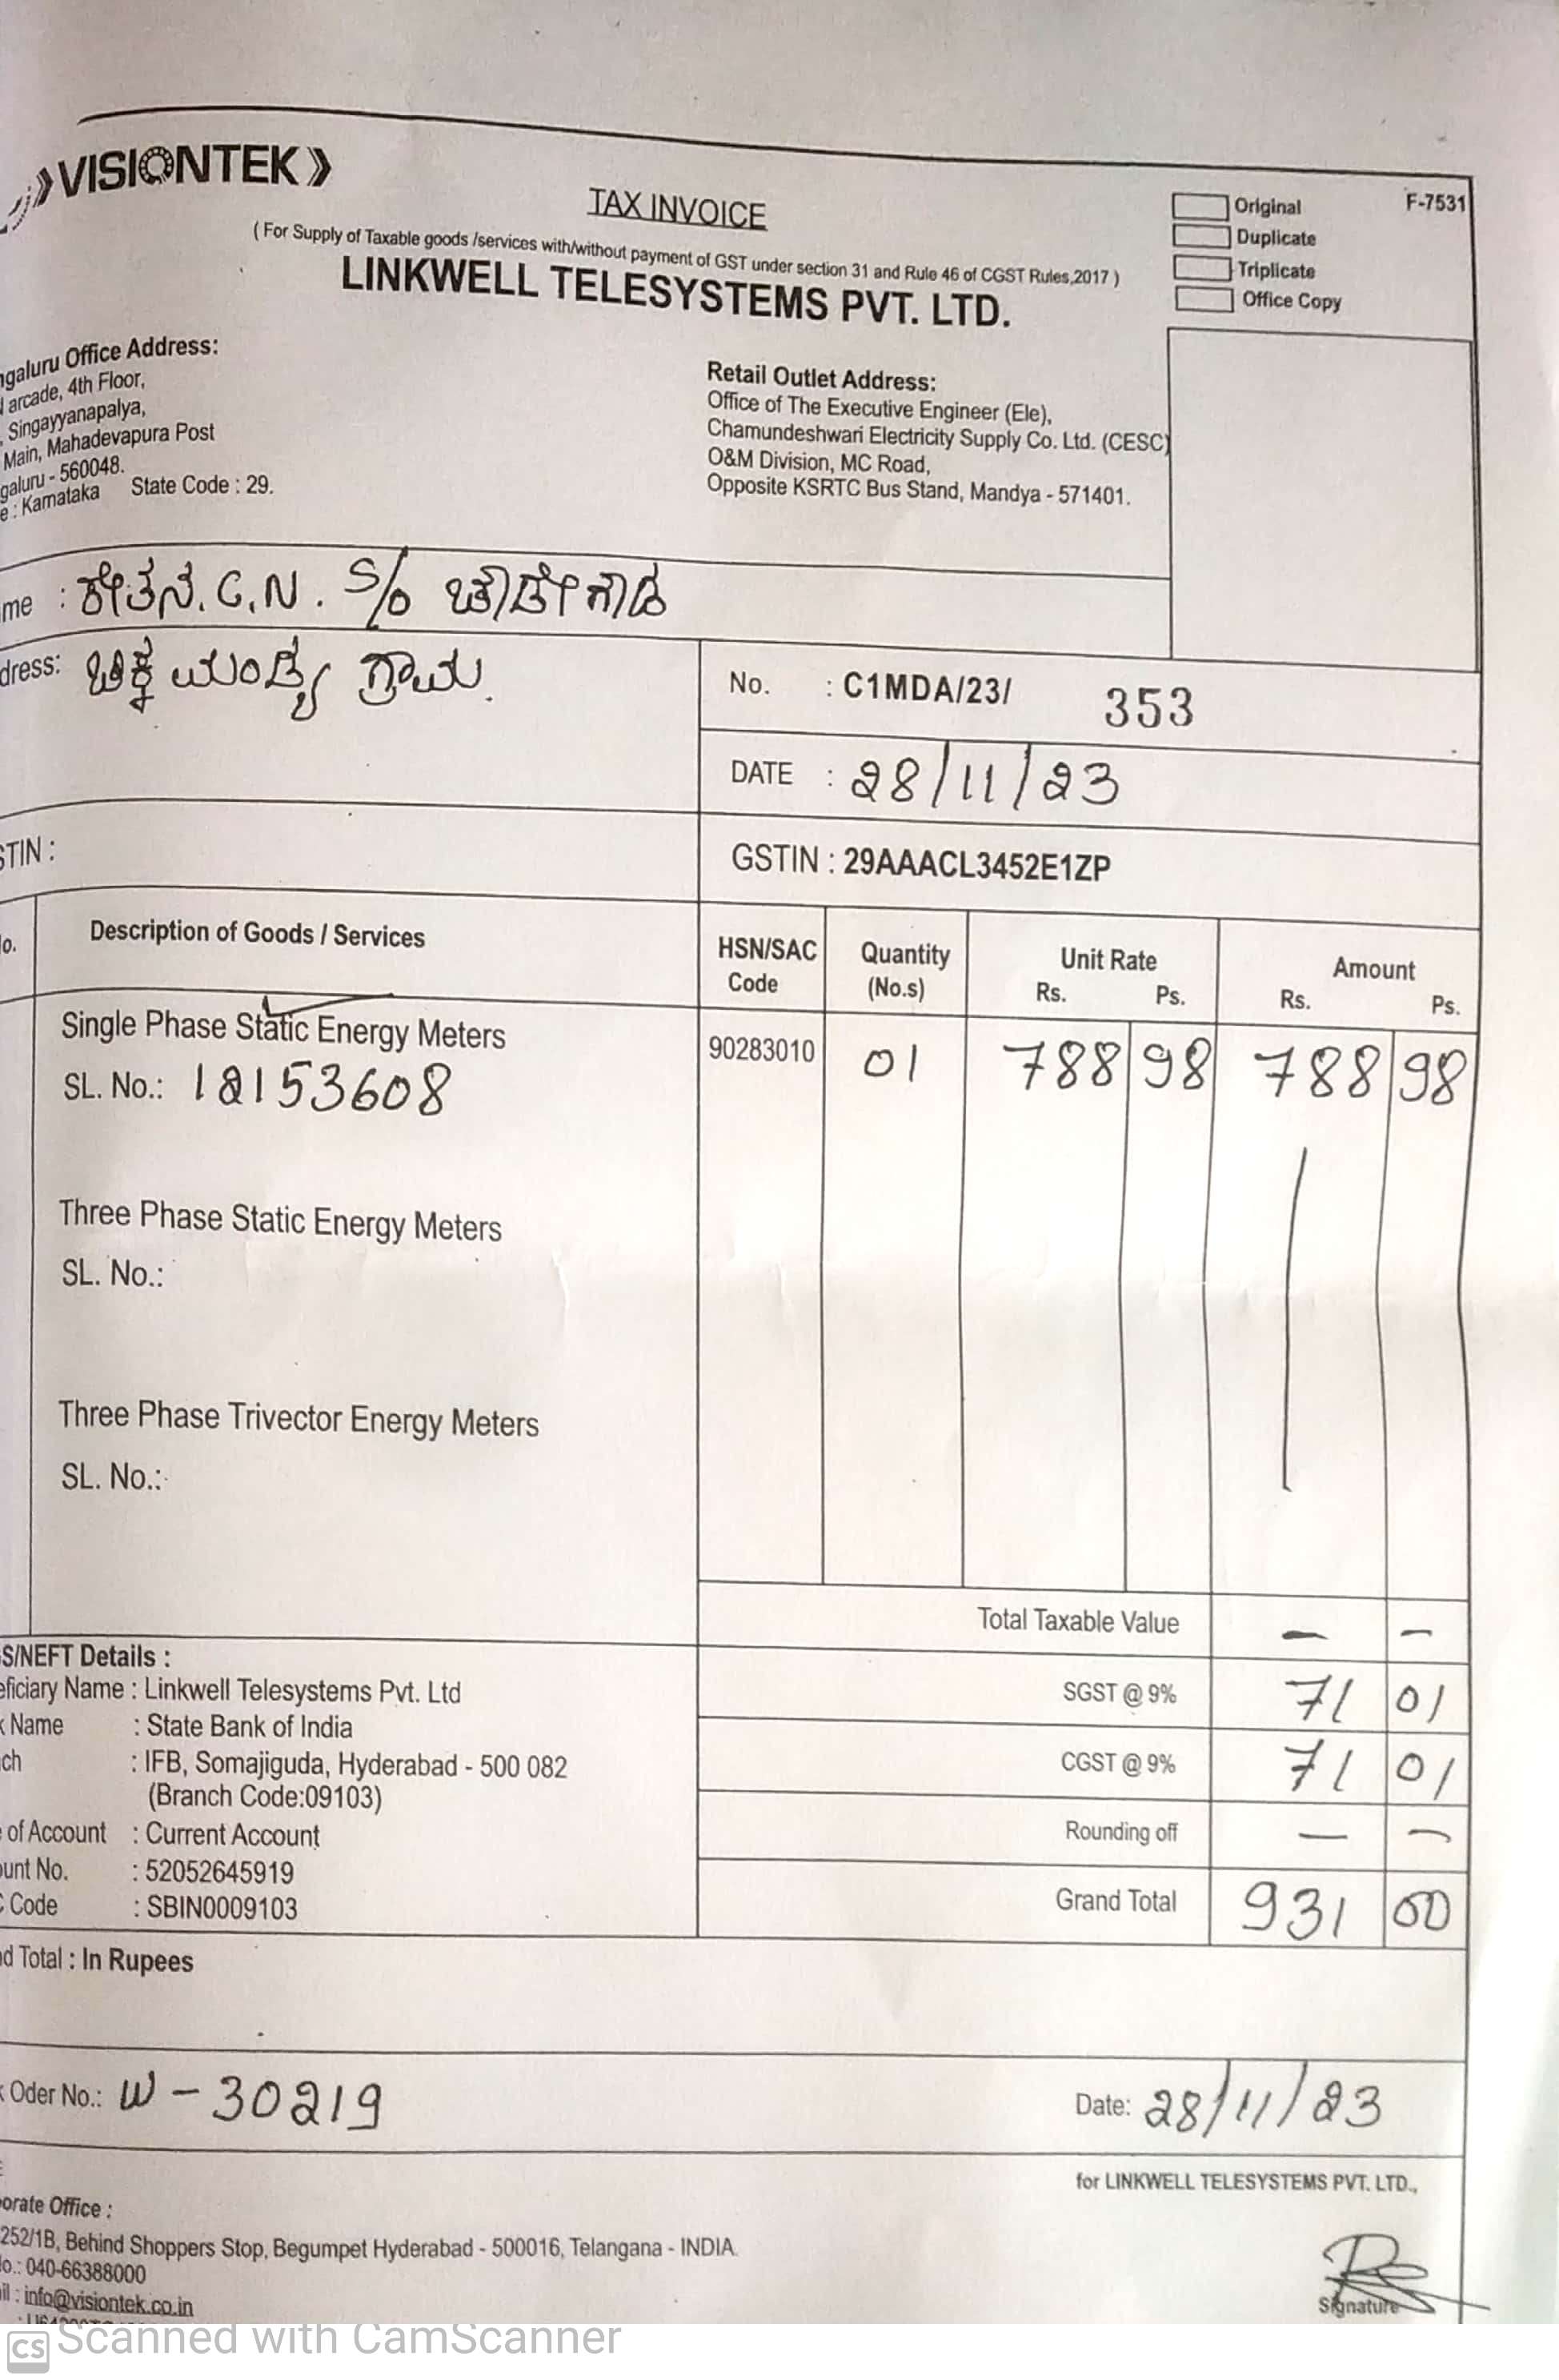 VISIONTEK
TAX INVOICE
Original
F-7531
Duplicate
Triplicate
Office Copy
( For Supply of Taxable goods /services with/without payment of GST under section 31 and Rule 46 of CGST Rules,2017 )
LINKWELL TELESYSTEMS PVT. LTD.
galuru Office Address:
arcade, 4th Floor,
Singayyanapalya,
Main, Mahadevapura Post
galuru - 560048.
e : Karnataka State Code : 29.
Retail Outlet Address:
Office of The Executive Engineer (Ele),
Chamundeshwari Electricity Supply Co. Ltd. (CESC)
O&M Division, MC Road,
Opposite KSRTC Bus Stand, Mandya - 571401.
me : ಕೇತನ. C.N. S/o ಚೌಡೇಗೌಡ
dress: ಚಿಕ್ಕ ಮಂಡ್ಯ ಗ್ರಾಮ.
No. : C1MDA/23/ 353
DATE : 28/11/23
STIN :
GSTIN : 29AAACL3452E1ZP
o. Description of Goods / Services HSN/SAC Code Quantity (No.s) Unit Rate Rs. Ps. Amount Rs. Ps.
Single Phase Static Energy Meters 90283010 01 788 98 788 98
SL. No.: 12153608
Three Phase Static Energy Meters
SL. No.:
Three Phase Trivector Energy Meters
SL. No.:
Total Taxable Value — –
S/NEFT Details :
eficiary Name : Linkwell Telesystems Pvt. Ltd
SGST @ 9% 71 01
k Name : State Bank of India
ch : IFB, Somajiguda, Hyderabad - 500 082
CGST @ 9% 71 01
(Branch Code:09103)
of Account : Current Account
Rounding off — –
unt No. : 52052645919
Code : SBIN0009103
Grand Total 931 00
d Total : In Rupees
Oder No.: W - 30219
Date: 28/11/23
for LINKWELL TELESYSTEMS PVT. LTD.,
orate Office :
252/1B, Behind Shoppers Stop, Begumpet Hyderabad - 500016, Telangana - INDIA.
lo.: 040-66388000
il : info@visiontek.co.in
Signature
CS Scanned with CamScanner